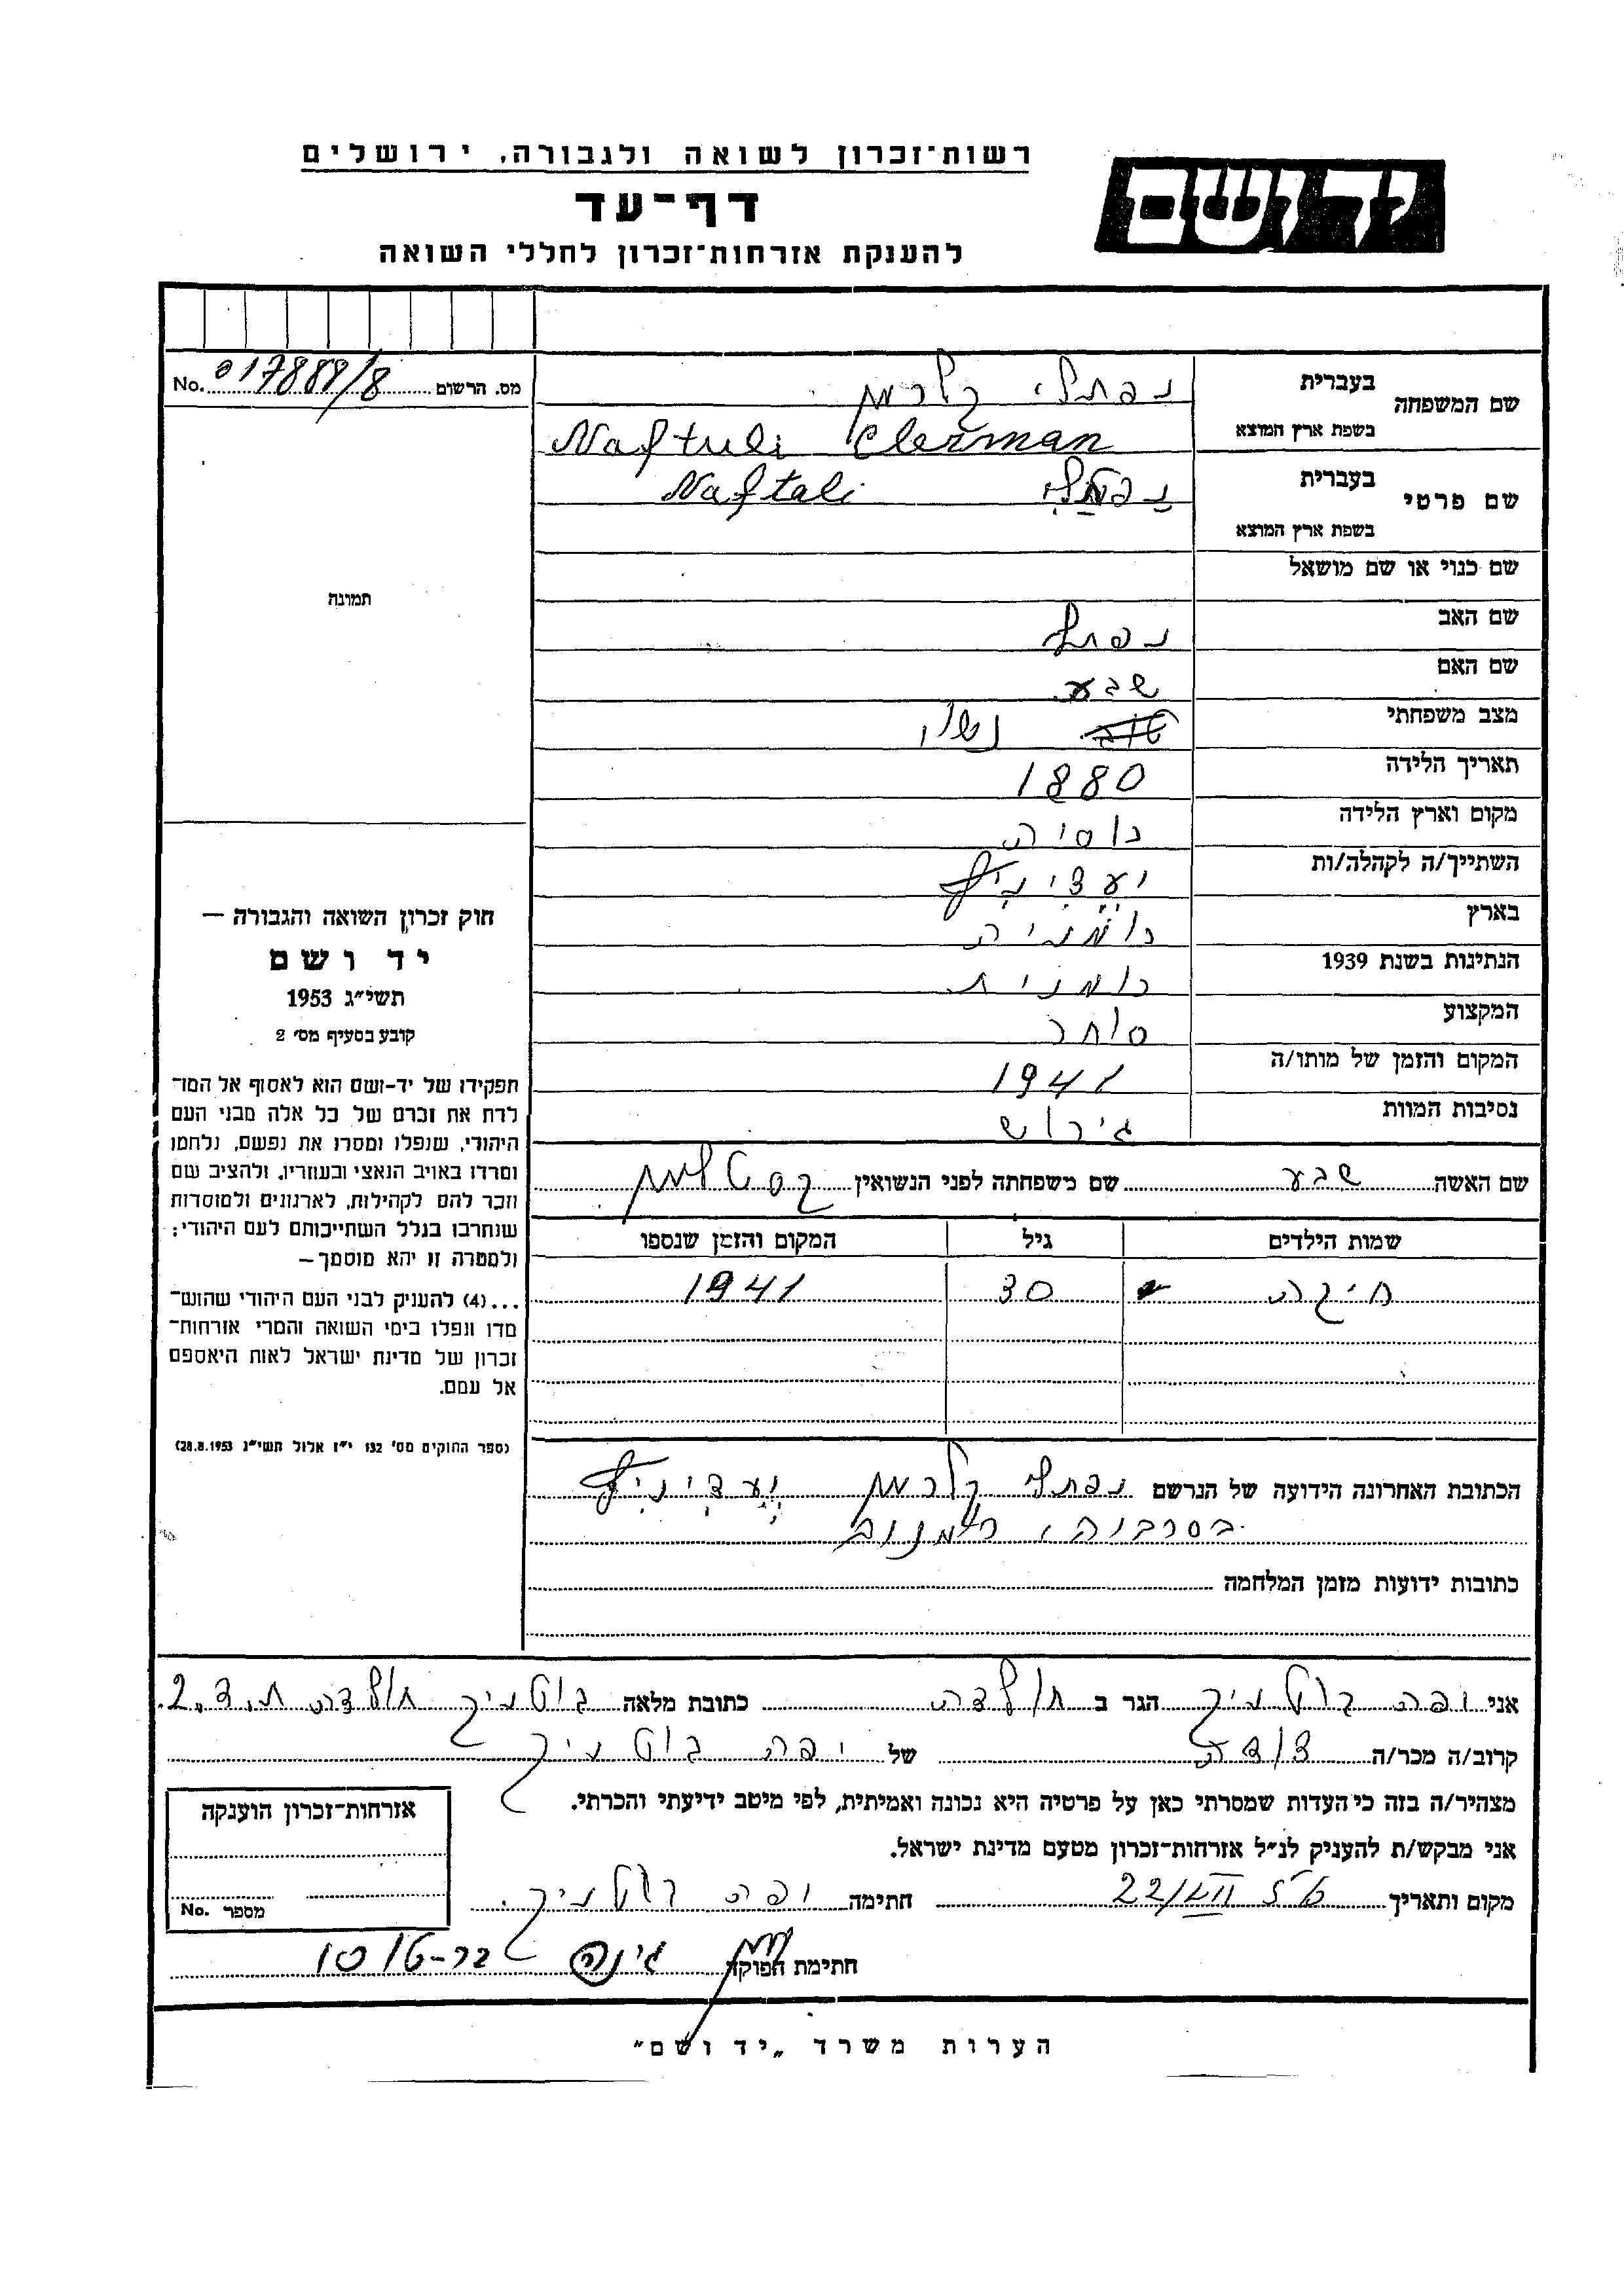 רשות־זכרון לשואה ולגבורה, ירושלים
יד ושם
דף־עד
להענקת אזרחות־זכרון לחללי השואה
מס. הרשום 017889/8 No.
שם המשפחה
בעברית נפתלי קלרמן
בשפת ארץ המוצא Naftuli Clerman
שם פרטי
בעברית נפתלי Naftali
בשפת ארץ המוצא
שם כנוי או שם מושאל
שם האב נפתלי
שם האם שבע
מצב משפחתי נשוי
תאריך הלידה 1880
מקום וארץ הלידה רוסיה
השתייך/ה לקהלה/ות יעדיניץ
בארץ רומניה
הנתינות בשנת 1939 רומנית
המקצוע סוחר
המקום והזמן של מותו/ה 1941
נסיבות המוות גירוש
שם האשה שבע שם משפחתה לפני הנשואין
שמות הילדים גיל המקום והזמן שנספו
חיקה 30 1941
הכתובת האחרונה הידועה של הנרשם נפתלי קלרמן יעדיניץ
בסרביה,
כתובות ידועות מזמן המלחמה
תמונה
חוק זכרון השואה והגבורה —
יד ושם
תשי״ג 1953
קובע בסעיף מס׳ 2
תפקידו של יד-ושם הוא לאסוף אל המו־
לדת את זכרם של כל אלה מבני העם
היהודי, שנפלו ומסרו את נפשם, נלחמו
ומרדו באויב הנאצי ובעוזריו, ולהציב שם
וזכר להם לקהילות, לארגונים ולמוסדות
שנחרבו בגלל השתייכותם לעם היהודי;
ולמטרה זו יהא מוסמך—
...(4) להעניק לבני העם היהודי שהוש־
מדו ונפלו בימי השואה והמרי אזרחות־
זכרון של מדינת ישראל לאות היאספם
אל עמם.
(ספר החוקים מס׳ 132 י״ז אלול תשי״ג 28.8.1953)
אני יפה גוטניק הגר ב חולדה כתובת מלאה גוטניק חולדה ת.ד. 2.
קרוב/ה מכר/ה של יפה גוטניק
מצהיר/ה בזה כי העדות שמסרתי כאן על פרטיה היא נכונה ואמיתית, לפי מיטב ידיעתי והכרתי.
אני מבקש/ת להעניק לנ״ל אזרחות־זכרון מטעם מדינת ישראל.
מקום ותאריך 22/VII חתימה יפה גוטניק.
חתימת הפוקד
אזרחות־זכרון הוענקה
מספר No.
הערות משרד „יד ושם״